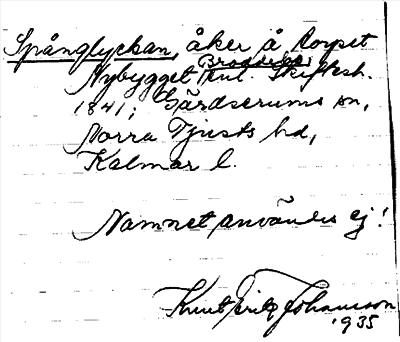 Spånglyckan, åker å Torpet
Nybygget enl. Skiftesh.
1841; Gärdserums sn,
Norra Tjusts hd,
Kalmar l.
Namnet användes ej!
Knut Erik Johansson
1935